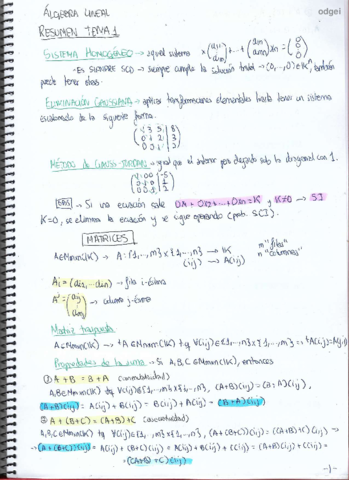 odgei
ÁLGEBRA LINEAL
RESUMEN TEMA 1
SISTEMA HOMOGÉNEO → aquel sistema x₁(a₁₁ ⋮ aₘ₁)+...+(a₁ₙ ⋮ aₘₙ)xₙ = (0 0 0)
·Es SIEMPRE SCD → siempre cumple la solución trivial → (0,...,0)∈Kⁿ, también
puede tener otras.
ELIMINACIÓN GAUSSIANA → aplicar transformaciones elementales hasta tener un sistema
escalonado de la siguiente forma.
MÉTODO DE GAUSS-JORDAN → igual que el anterior pero dejando solo la diagonal con 1.
→ Si una ecuación sale 0x₁+0x₂+...+0xₙ=K y K≠0 → SI
K=0, se elimina la ecuación y se sigue operando (prob. SCI).
MATRICES
A∈Mmxn(K) → A: {1,...,m}x{1,...,n} → K m "filas"
(i,j) → A(i,j) n "columnas"
Ai = (ai1,...,ain) → fila i-ésima
→ columna j-ésima
Matriz traspuesta
Propiedades de la suma → Si A,B,C∈Mmxn(K), entonces
① A+B = B+A (conmutatividad)
A,B∈Mmxn(K) tq ∀(i,j)∈{1,...,m}x{1,...,n}, (A+B)(i,j) = (B+A)(i,j),
(A+B)(i,j) = A(i,j) + B(i,j) = B(i,j) + A(i,j) = (B+A)(i,j)
② A+(B+C) = (A+B)+C (asociatividad)
A,B,C∈Mmxn(K) tq ∀(i,j)∈{1,...,m}x{1,...,n}, (A+(B+C))(i,j) = ((A+B)+C)(i,j) →
→ (A+(B+C))(i,j) = A(i,j) + (B+C)(i,j) = A(i,j) + B(i,j) + C(i,j) = (A+B)(i,j) + C(i,j) =
= ((A+B)+C)(i,j)
-1-